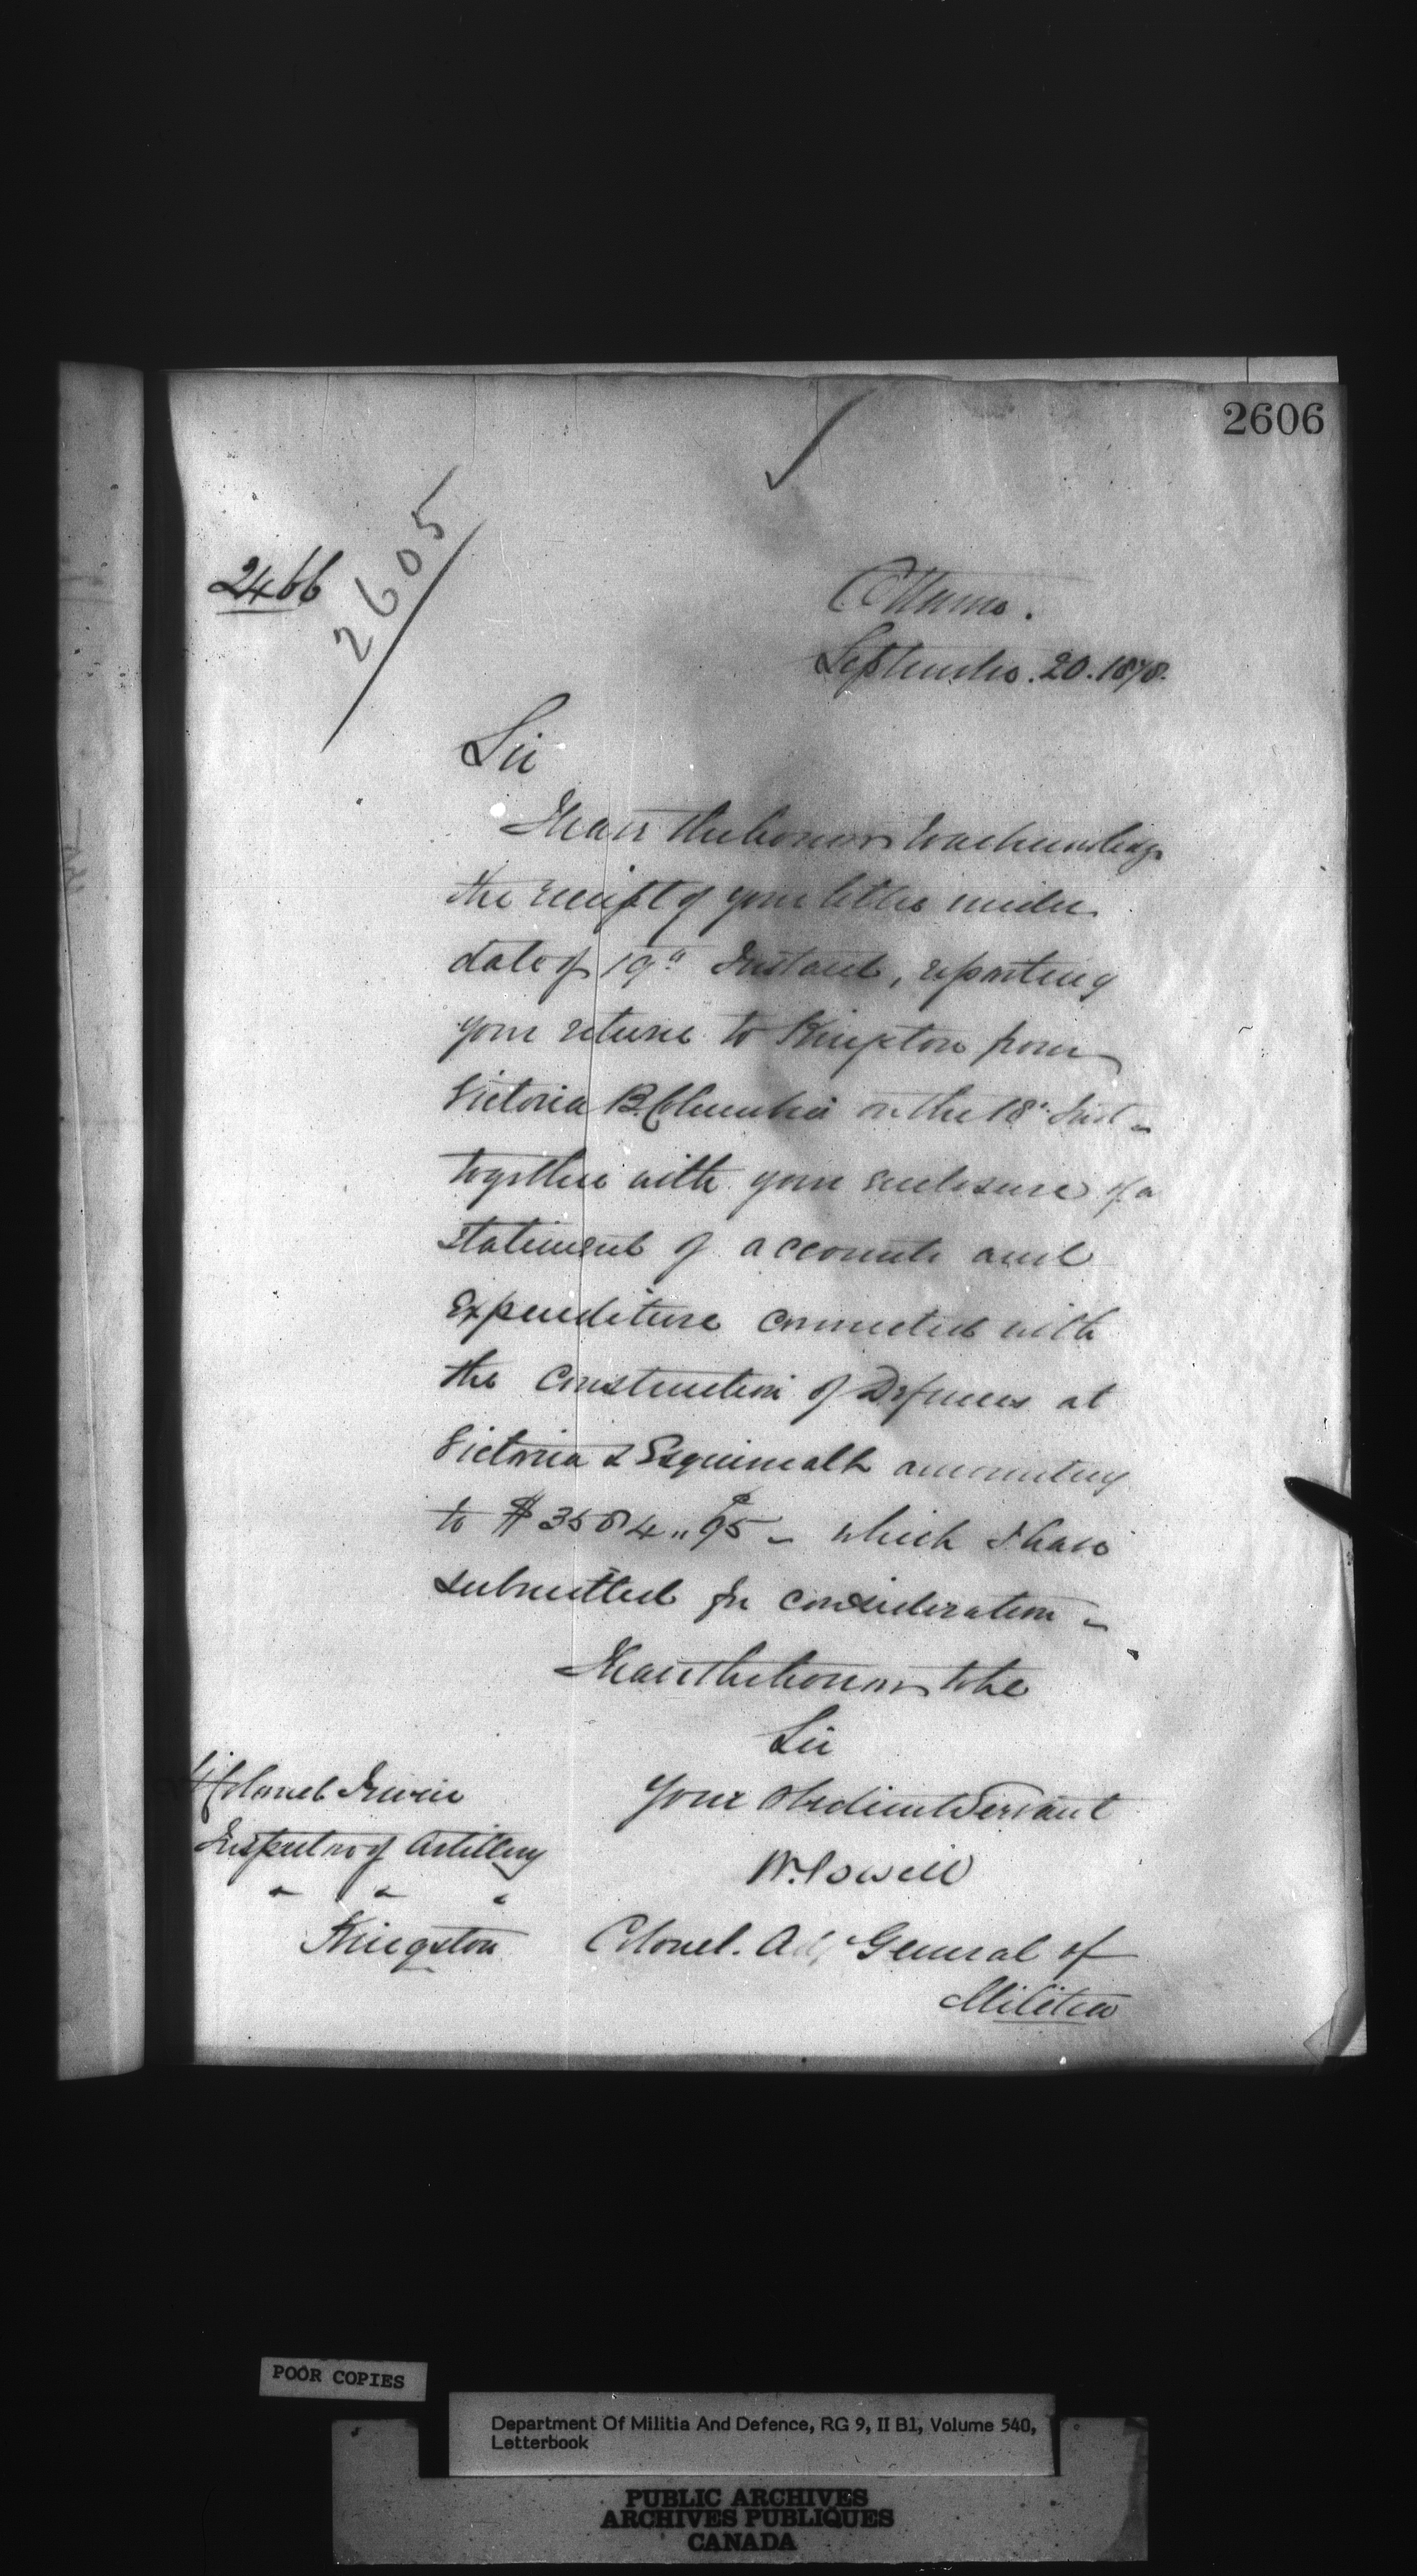 2606
2466
2605
Ottawa.
September. 20. 1878.
Sir
I have the honor to acknowledge
the receipt of your letter under
date of 19th Instant, reporting
your return to Kingston from
Victoria B. Columbia on the 18th Inst -
together with your enclosure of a
statement of accounts and
Expenditure connected with
the Construction of Defences at
Victoria & Esquimalt amounting
to $ 3584 " 95 - which I have
submitted for consideration -
I have the honor to be
Sir
Your Obedient Servant
W. Powell
Colonel. Adj General of
Militia
Lt Colonel Irwin
Inspector of Artillery
" " "
Kingston
POOR COPIES
Department Of Militia And Defence, RG 9, II B1, Volume 540,
Letterbook
PUBLIC ARCHIVES
ARCHIVES PUBLIQUES
CANADA